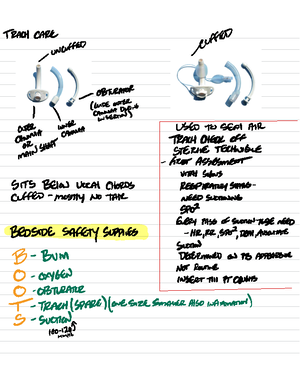 TRACH CARE
UNCUFFED
CUFFED
OBTURATOR
(GUIDE OUTER
CANNULA DURING
INSERTION)
OUTER
CANNULA
OR
MAIN SHAFT
INNER
CANNULA
SITS BELOW VOCAL CHORDS
CUFFED - MOSTLY NO TALK
BEDSIDE SAFETY SUPPLIES
B - BVM
O - OXYGEN
O - OBTURATOR
T - TRACH (SPARE) (ONE SIZE SMALLER ALSO W/
S - SUCTION
100-120
mmHg
USED TO SEAL AIR
TRACH CHECK OFF
STERILE TECHNIQUE
- FIRST ASSESSMENT
VITAL SIGNS
RESPIRATORY STATUS -
NEED SUCTIONING
SPO²
EVERY PASS OF SUCTION TUBE NEED
- HR, RR, SPO²,
SUCTION
DETERMINED ON PT APPEARANCE
NOT ROUTINE
INSERT TILL PT COUGHS